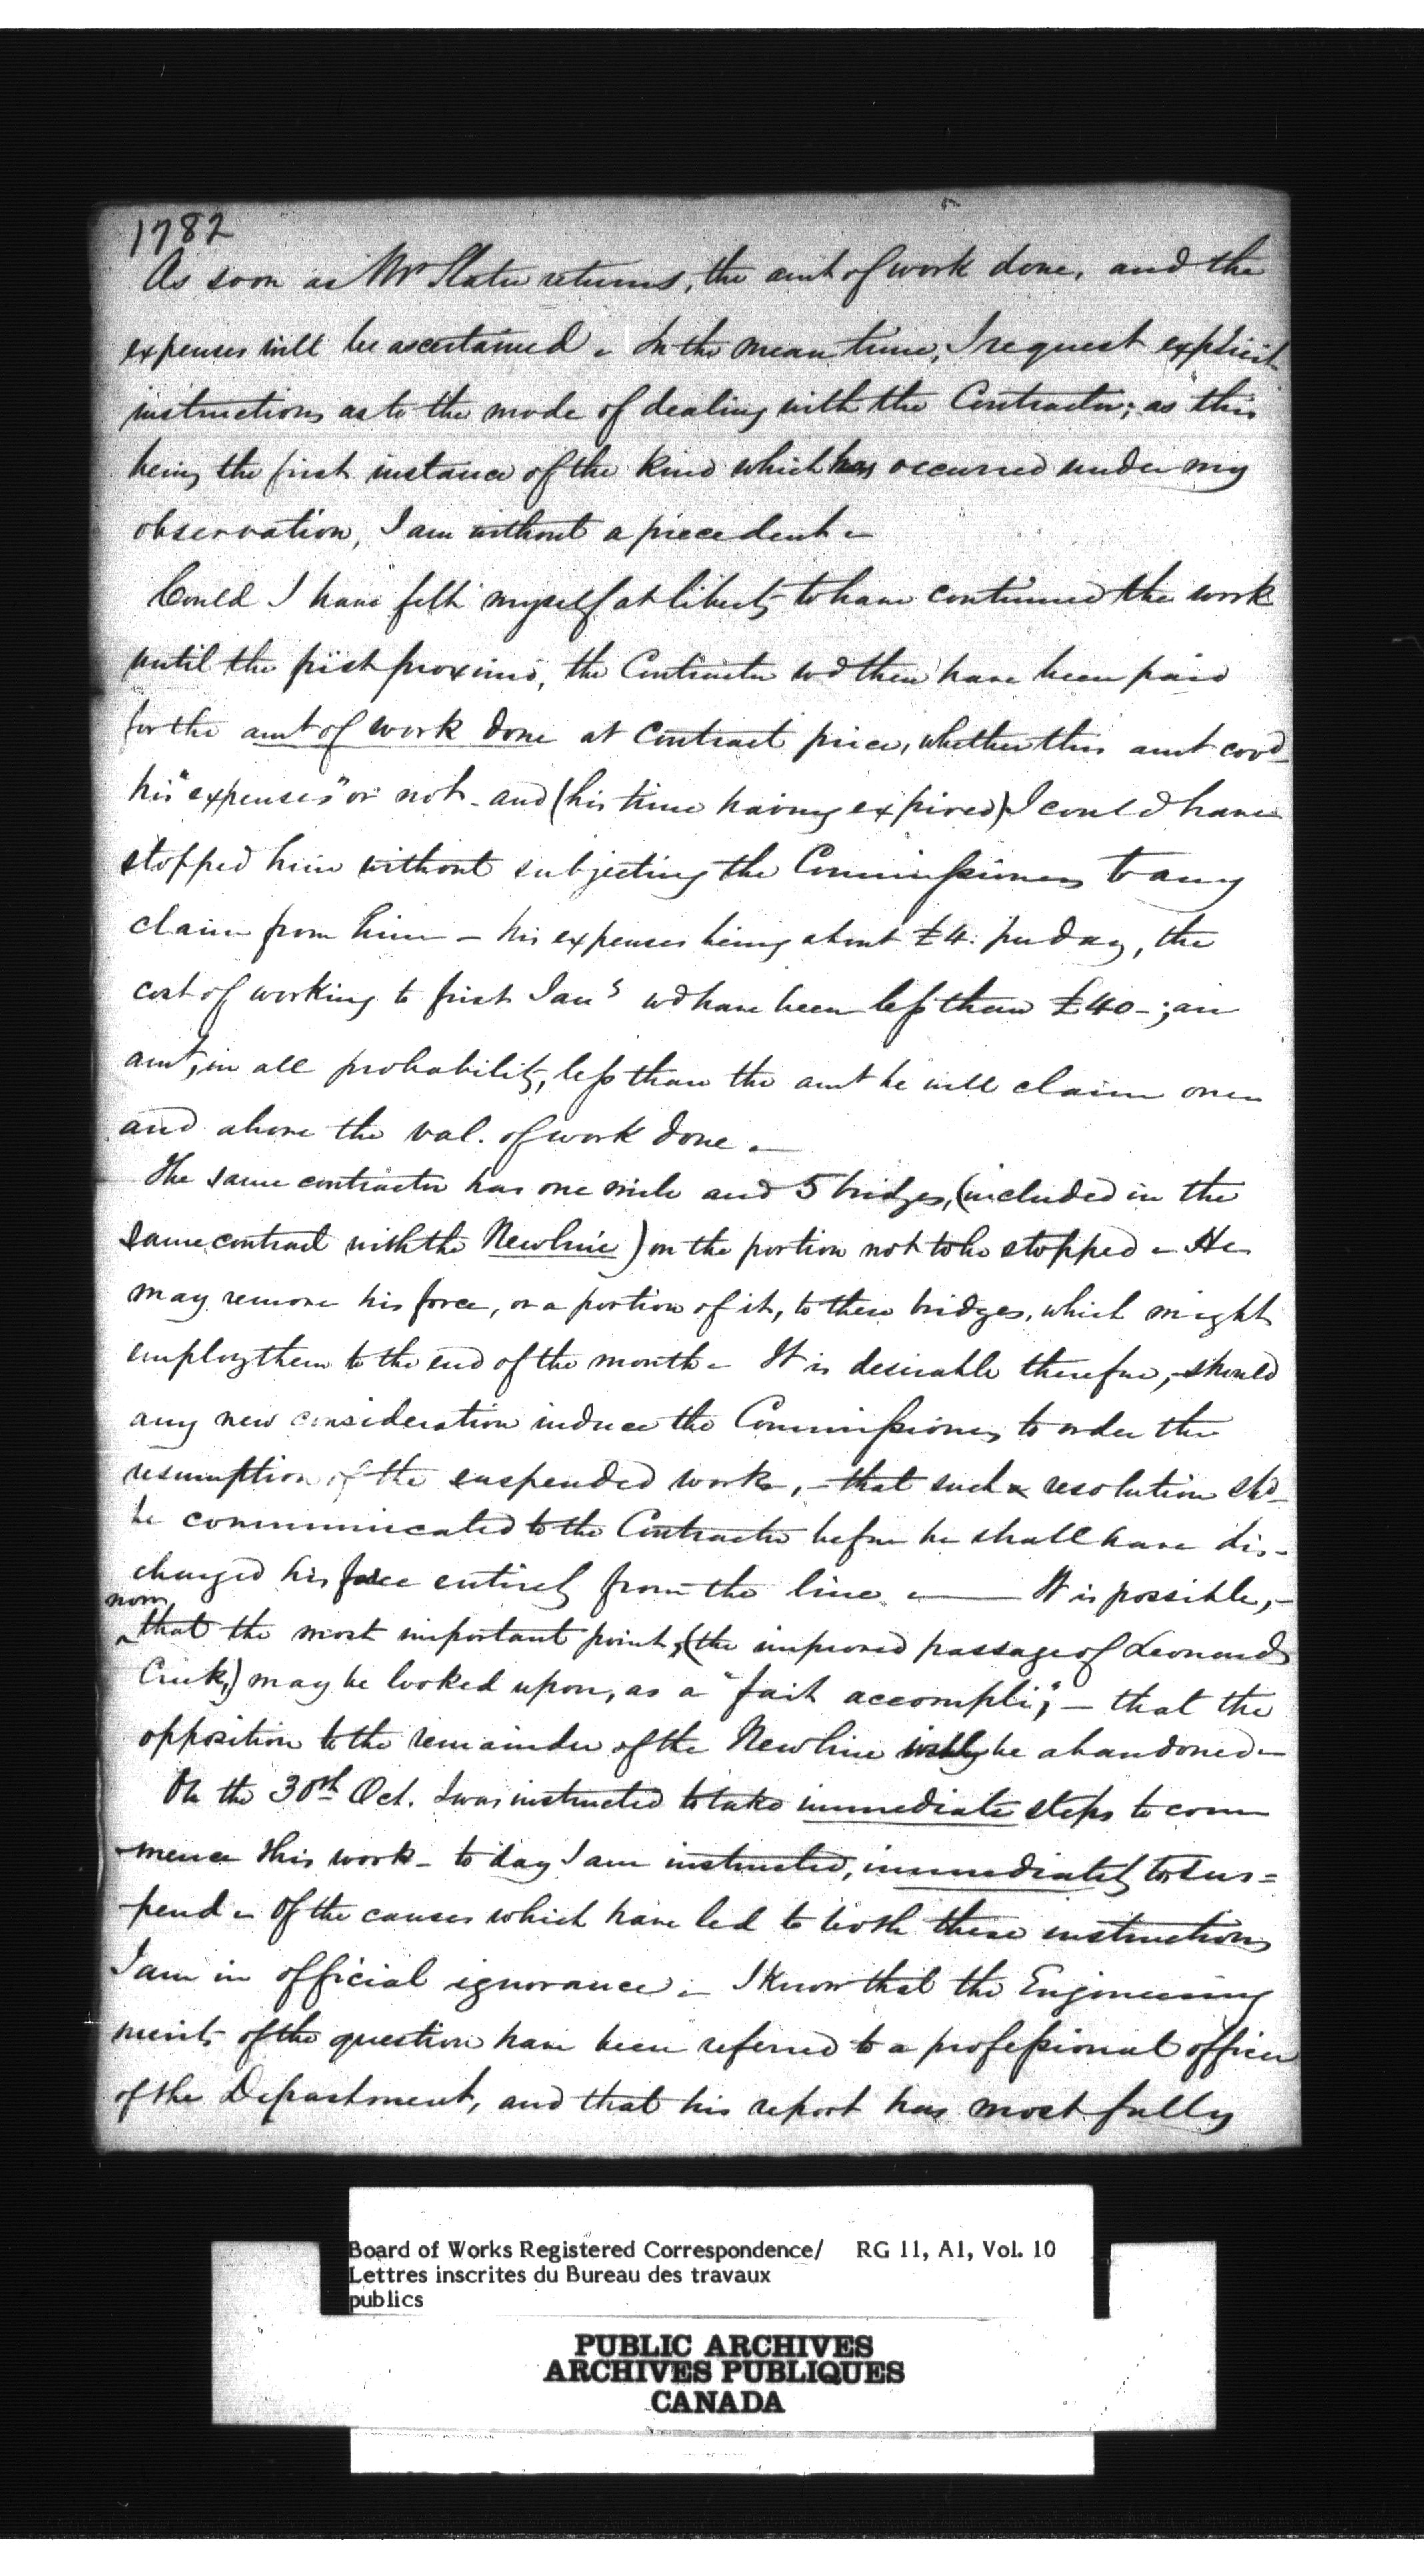 1782
As soon as Mr Slater returns, the amt of work done, and the
expenses will be ascertained. In the mean time, I request explicit
instructions as to the mode of dealing with the Contractor; as this
being the first instance of the kind which has occurred under my
observation, I am without a precedent.
Could I have felt myself at liberty to have continued the work
until the first proximo, the Contractor wd then have been paid
for the amt of work done at contract price, whether this amt covd
his "expenses" or not - and (his time having expired) I could have
stopped him without subjecting the Commissioners to any
claim from him - his expenses being about £4. per day, the
cost of working to first Jany wd have been less than £40 -; an
amt, in all probability, less than the amt he will claim over
and above the val. of work done.
The same contractor has one mile and 5 bridges, (included in the
same contract with the New line) on the portion not to be stopped - He
may remove his force, or a portion of it, to these bridges, which might
employ them to the end of the month - It is desirable therefore, - should
any new consideration induce the Commissioners to order the
resumption of the suspended works, - that such a resolution shd
be communicated to the Contractor before he shall have dis-
charged his force entirely from the line. It is possible, -
now
that the most important point, (the improved passage of Leonards
Creek,) may be looked upon, as a "fait accompli"; - that the
opposition to the remainder of the New line will be abandoned -
On the 30th Oct. I was instructed to take immediate steps to com
-mence this work - to day I am instructed, immediately to sus=
-pend - Of the causes which have led to both these instructions
I am in official ignorance. - I know that the Engineering
merits of the question have been referred to a professional officer
of the Department, and that his report has most fully
Board of Works Registered Correspondence/ RG 11, A1, Vol. 10
Lettres inscrites du Bureau des travaux
publics
PUBLIC ARCHIVES
ARCHIVES PUBLIQUES
CANADA